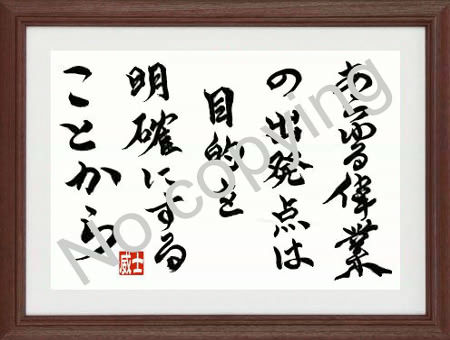 あらゆる偉業
の出発点は
目的を
明確にする
ことから
威士
No copying